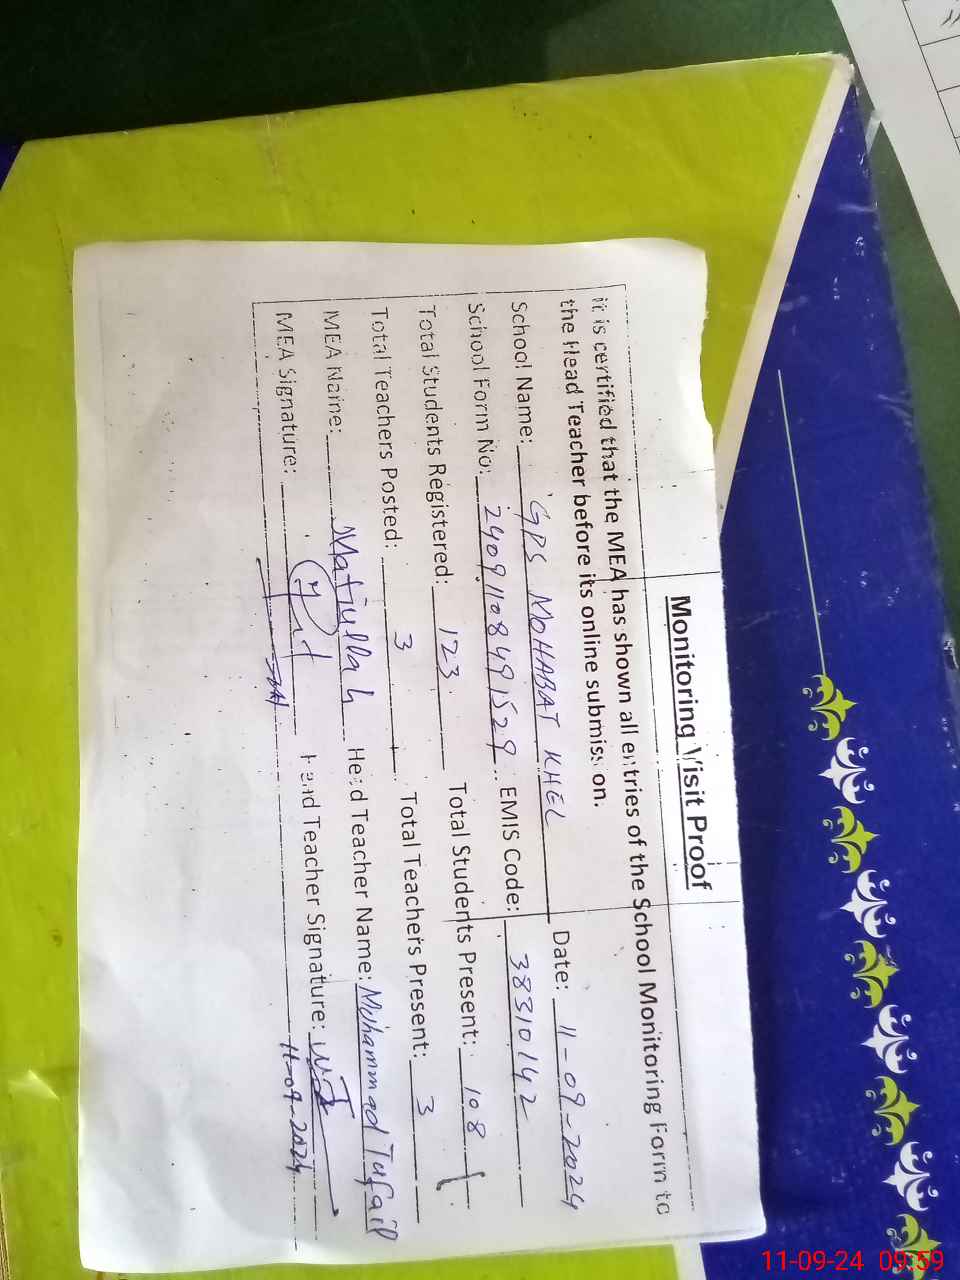 Monitoring Visit Proof
It is certified that the MEA has shown all entries of the School Monitoring Form to
the Head Teacher before its online submission.
School Name: GPS MOHABAT KHEL Date: 11-09-2024
School Form No: 24091108491529 EMIS Code: 38310142
Total Students Registered: 123 Total Students Present: 108
Total Teachers Posted: 3 Total Teachers Present: 3
MEA Name: Matiullah Head Teacher Name: Mohammad Tufail
MEA Signature: Head Teacher Signature:
11-09-2024
11-09-24 09:59